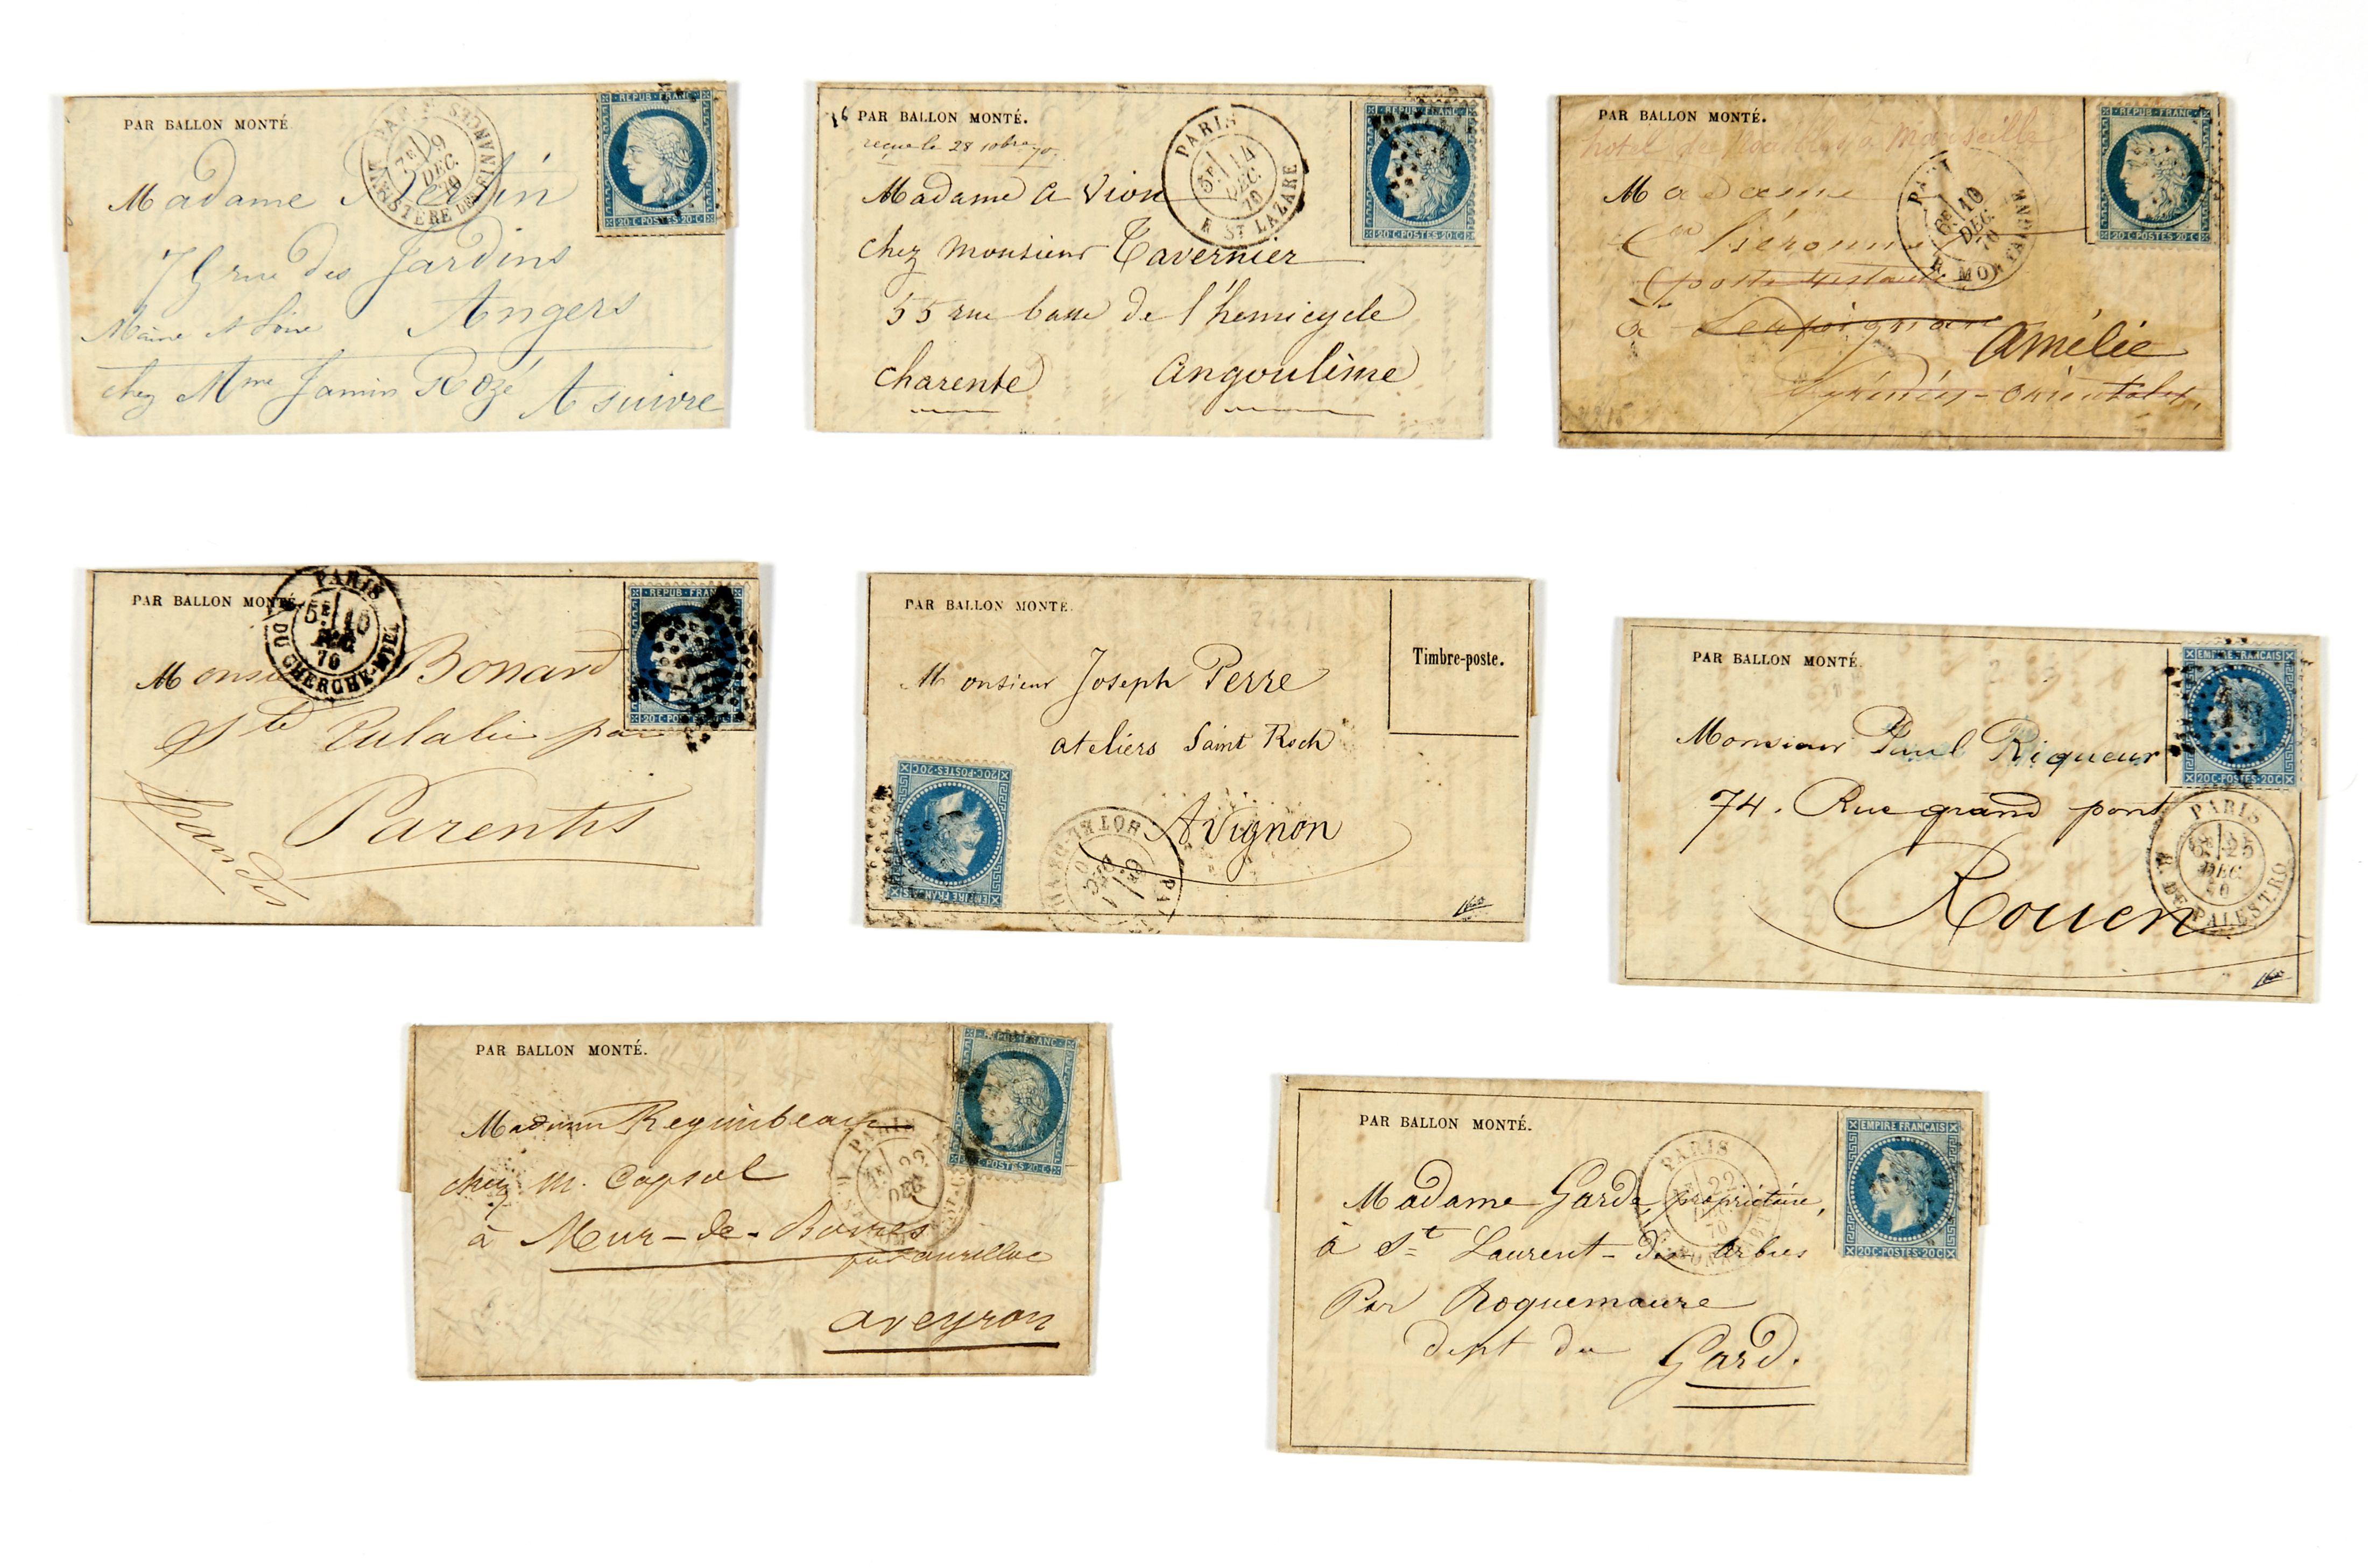 PAR BALLON MONTÉ
PARIS
7E 9
DEC.
70
MINISTÈRE DES FINANCES
REPUB·FRANC
20·C·POSTES·20·C
Madame
rue des Jardins
Maine et Loire Angers
chez Mme Jamin Rozé A suivre
16 PAR BALLON MONTÉ.
reçue le 28 10bre 70
PARIS
5E 14
DEC.
70
R. ST LAZARE
REPUB·FRANC
20·C·POSTES·20·C
Madame A Vion
chez Monsieur Tavernier
55 rue basse de l'hemicycle
charente angoulême
PAR BALLON MONTÉ.
hôtel de à Marseille
PARIS
6E 10
DEC.
70
R. MONTAIGNE
REPUB·FRANC
20·C·POSTES·20·C
Madame
poste restante
à
Amélie
Pyrénées-orientales
PAR BALLON MONTÉ
PARIS
5E
DEC.
70
DU CHERCHE-MIDI
REPUB·FRANC
20·C·POSTES
Monsieur Bonard
Ste Eulalie par
Parentis
Landes
PAR BALLON MONTÉ.
Timbre-poste.
Monsieur Joseph Perre
ateliers Saint Roch
Avignon
EMPIRE FRANÇAIS
20·C·POSTES·20·C
6E
DEC.
PAR BALLON MONTÉ.
EMPIRE FRANÇAIS
20·C·POSTES·20·C
Monsieur Paul Riqueur
74. Rue grand pont
Rouen
PARIS
25
DEC.
70
R. DE PALESTRO
PAR BALLON MONTÉ.
REPUB·FRANC
POSTES·20·C
Madame Regimbeau
chez M. Capsol
à Mur-de-Barres
par aurillac
aveyron
PARIS
22
DEC.
PAR BALLON MONTÉ.
EMPIRE FRANÇAIS
20·C·POSTES·20·C
PARIS
22
70
Madame Garde, propriétaire,
à St Laurent-des arbres
Par Roquemaure
dept du Gard.